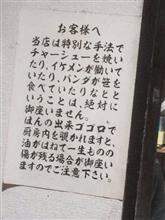 お客様へ
当店は特別な手法で
チャーシューを焼い
たり、イケメンが働いて
いたり、パンダが笹を
食べていたりなどと
いうことは、絶対に
御座いません。
ほんの出来ゴゴロで
厨房内を覗かれますと、
油がはねて一生もの
の傷が残る場合が御座い
ますのでご注意下さい。